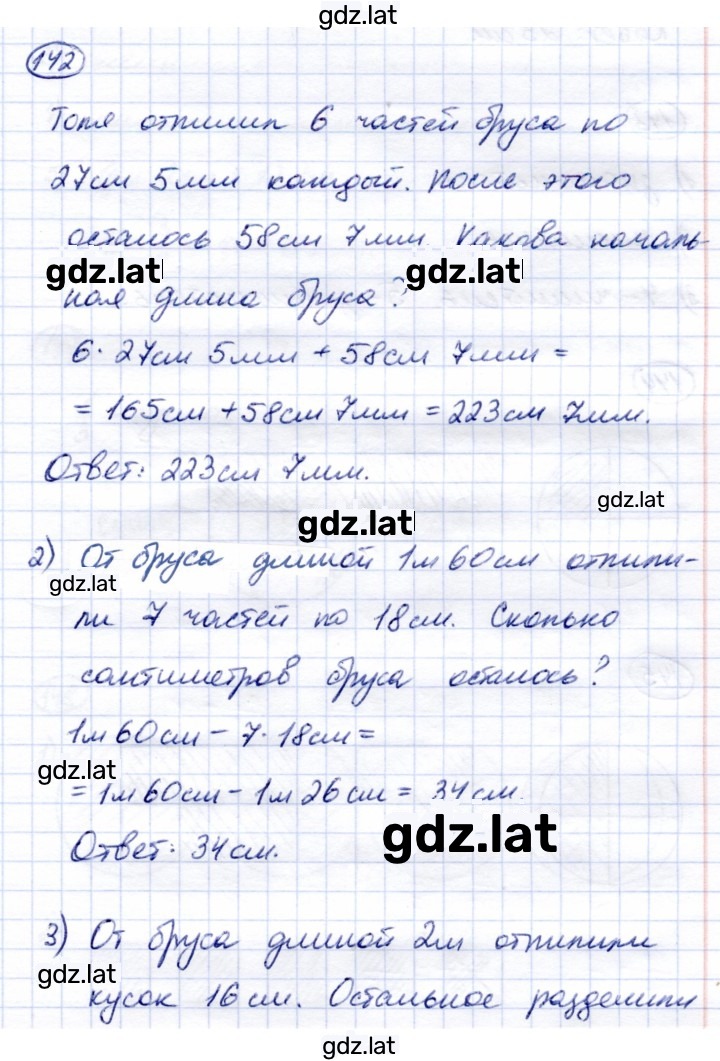 gdz.lat
142
Толя отпилил 6 частей бруса по
27см 5мм каждый. После этого
осталось 58см 7мм. Какова началь-
gdz.lat gdz.lat
ная длина бруса?
6 · 27см 5мм + 58см 7мм =
= 165см + 58см 7мм = 223см 7мм.
Ответ: 223см 7мм.
gdz.lat
gdz.lat
2) От бруса длиной 1м 60см отпили-
gdz.lat
ли 7 частей по 18см. Сколько
сантиметров бруса осталось?
1м 60см - 7 · 18см =
gdz.lat
= 1м 60см - 1м 26см = 34см.
gdz.lat
Ответ: 34см.
3) От бруса длиной 2м отпилили
gdz.lat
кусок 16см. Остальное разделили
gdz.lat